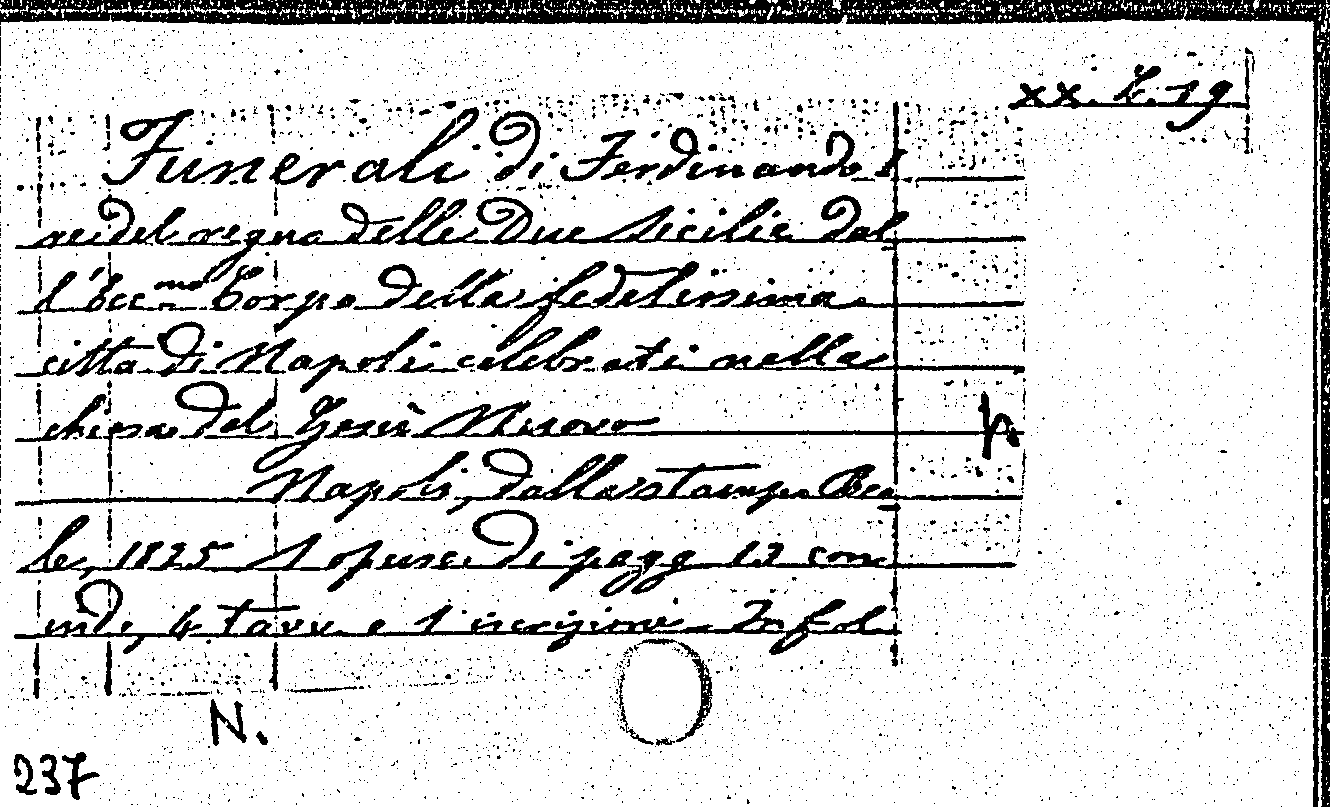 xx. Z. 19
Funerali di Ferdinando I
re del regno delle Due Sicilie dal
l'Ecc.mo Corpo della fedelissima
città di Napoli celebrati nella
chiesa del Gesù Nuovo
Napoli, dalla stamp. Rea
le, 1825 1 opusc. di pagg 12 con
indi, 4 tavv. e 1 iscrizione - In fol.
N.
237